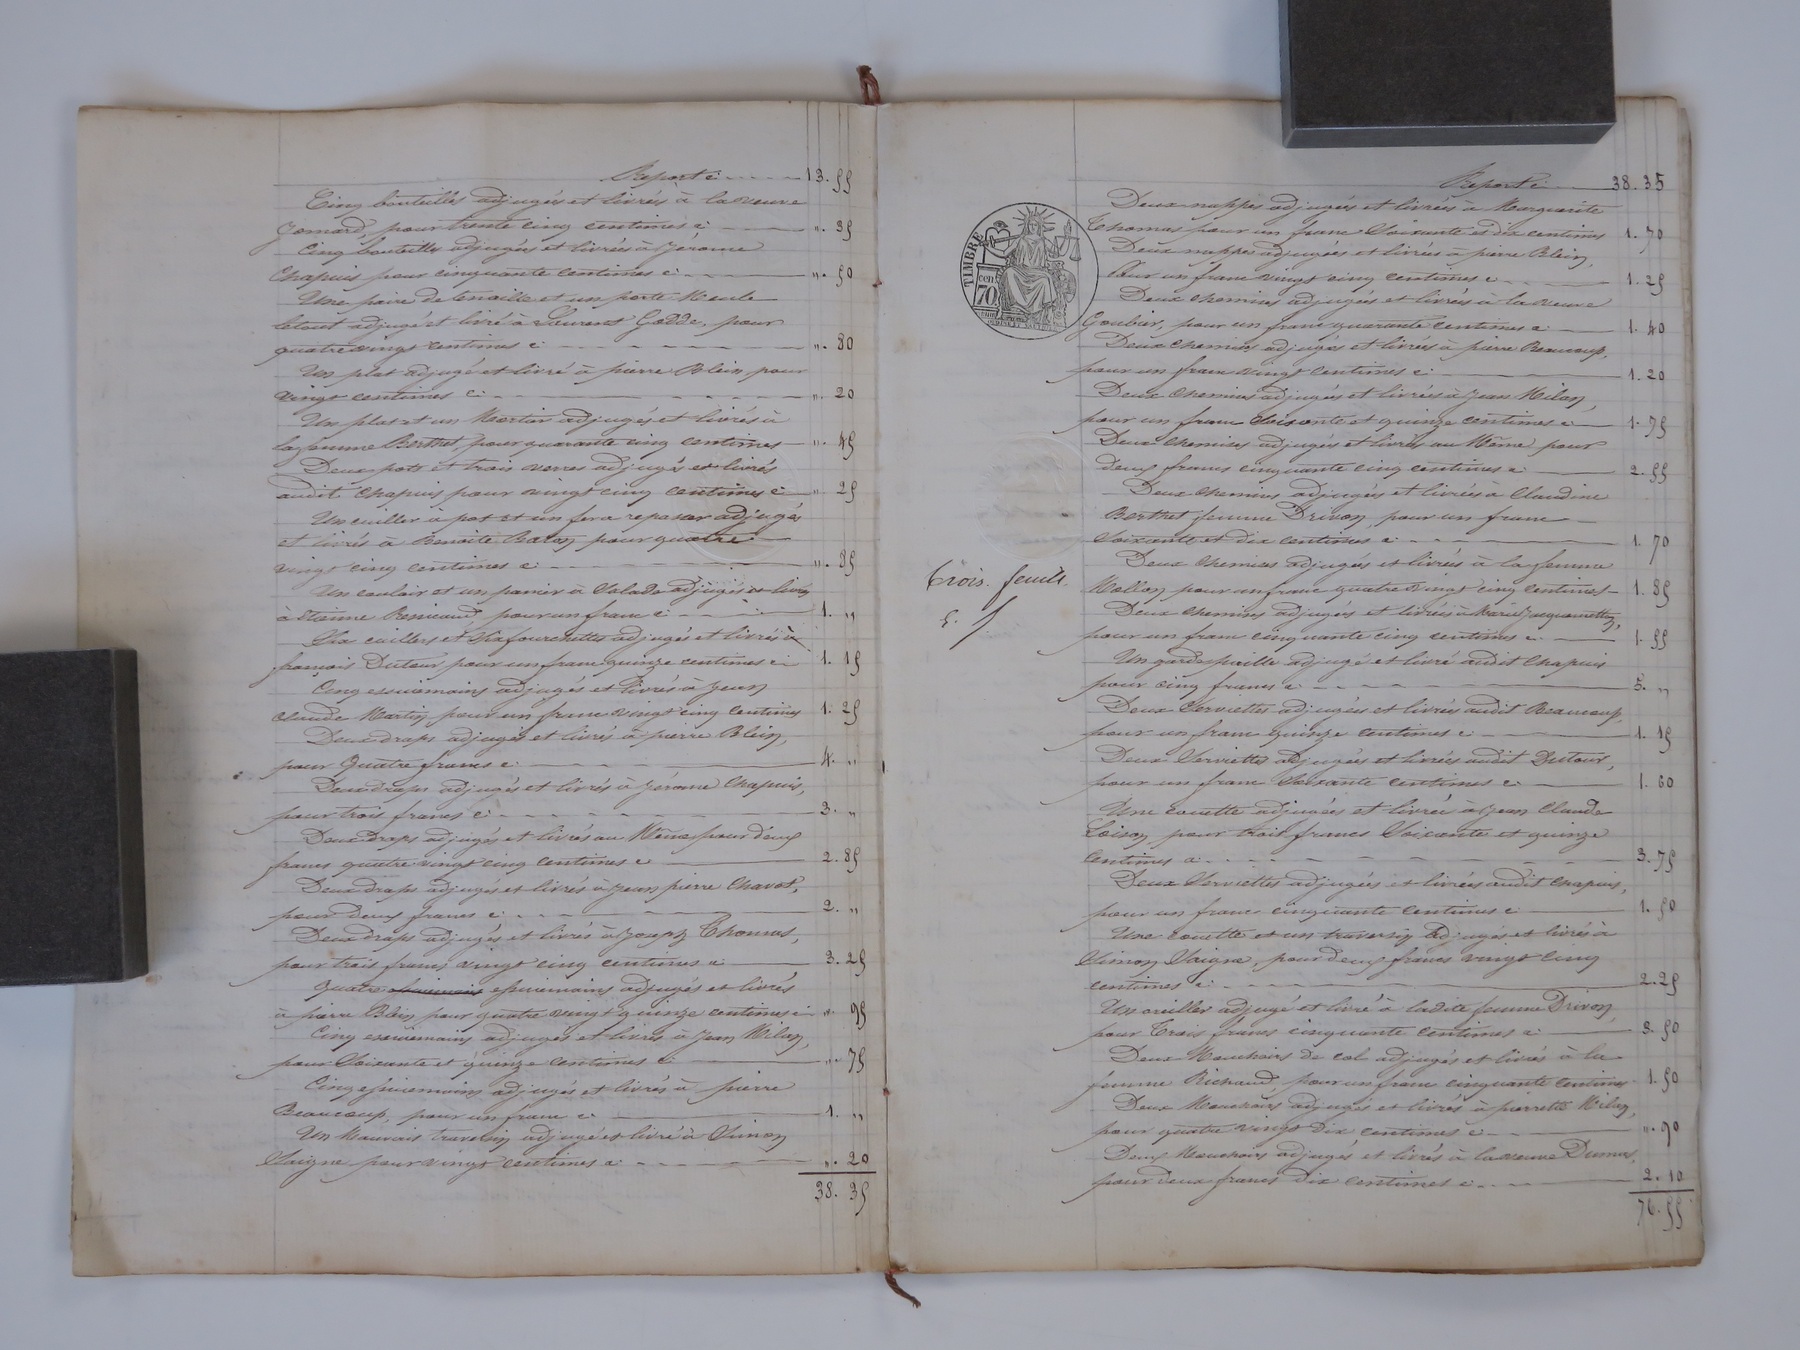 Report ci 13. 55
Cinq bouteilles adjugés et livrés à la veuve
Jomard, pour trente cinq centimes ci ". 35
Cinq bouteilles adjugés et livrés à Jerome
Chapuis pour cinquante centimes ci ". 50
Une paire de tenaille et un porte Meule
letout adjugé et livré à Laurent Gedde, pour
quatrevingt centimes ci ". 80
Un plat adjugé et livré à pierre Blein pour
vingt centimes ci ". 20
Un plat et un Mortier adjugés et livrés à
la femme Berthet, pour quarante cinq centimes ". 45
Deux pots et trois verres adjugés et livrés
audit Chapuis pour vingt cinq centimes ci ". 25
Un cuiller à pot et un fer a repasser adjugés
et livrés à Benoite Baron pour quatre
vingt cinq centimes ci ". 85
Un couloir et un panier à Salade adjugés et livrés
à Etienne pour un franc ci 1. "
Six cuillers et Six fourchettes adjugés et livrés à
françois Dutour pour un franc quinze centimes ci 1. 15
Cinq essuiemains adjugés et livrés à Jean
Claude Martin pour un franc vingt cinq centimes 1. 25
Deux draps adjugés et livrés à pierre Blein,
pour quatre francs ci 4. "
Deux draps adjugés et livrés à Jérome Chapuis,
pour trois francs ci 3. "
Deux draps adjugés et livrés au Même pour deux
francs quatre vingt cinq centimes ci 2. 85
Deux draps adjugés et livrés à Jean pierre Chavot,
pour deux francs ci 2. "
Deux draps adjugés et livrés à Joseph Thomas,
pour trois francs vingt cinq centimes ci 3. 25
Quatre essuiemains adjugés et livrés
à pierre Blein pour quatre vingt quinze centimes ci ". 95
Cinq essuiemains adjugés et livrés à Jean Milan,
pour Soixante et quinze centimes ci ". 75
Cinq essuiemains adjugés et livrés à pierre
Beaucoup, pour un franc ci 1. "
Un Mauvais traversin adjugé et livré à Simon
Saigne pour vingt centimes ci ". 20
38. 35
Report ci 38. 35
TIMBRE
cen
70
Deux nappes adjugés et livrées à Marguerite
Thomas pour un franc Soixante et dix centimes 1. 70
Deux nappes adjugées et livrés à pierre Blein,
Pour un franc vingt cinq centimes ci 1. 25
Deux chemises adjugés et livrées à la veuve
Goubier, pour un franc quarante centimes ci 1. 40
Deux chemises adjugés et livrés à pierre Beaucoup,
pour un franc vingt centimes ci 1. 20
Deux chemises adjugés et livrés à Jean Milan,
pour un franc Soixante et quinze centimes ci 1. 75
Deux chemises adjugés et livrés au Même pour
deux francs cinquante cinq centimes ci 2. 55
Deux chemises adjugés et livrées à Claudine
Berthet femme Drivon, pour un franc
Soixante et dix centimes ci 1. 70
Deux chemises adjugés et livrées à la femme
Mollon pour un franc quatre vingt cinq centimes 1. 85
Trois. feuilt.
Deux chemises adjugés et livrés à
pour un franc cinquante cinq centimes ci 1. 55
Un gardepaille adjugé et livré audit Chapuis
pour cinq francs ci 5. "
Deux Serviettes adjugées et livrées audit Beaucoup,
pour un franc quinze centimes ci 1. 15
Deux Serviettes adjugées et livrées audit Dutour,
pour un franc Soixante centimes ci 1. 60
Une couette adjugées et livrée à Jean Claude
Loison, pour trois francs Soixante et quinze
centimes ci 3. 75
Deux Serviettes adjugées et livrées audit Chapuis,
pour un franc cinquante centimes ci 1. 50
Une couette et un traversin adjugés et livrés à
Simon Saigne, pour deux francs vingt cinq
centimes ci 2. 25
Un oreiller adjugé et livré à ladite femme Drivon,
pour Trois francs cinquante centimes ci 3. 50
Deux Mouchoirs de col adjugés et livrés à la
femme Richaud, pour un franc cinquante centimes 1. 50
Deux Mouchoirs adjugés et livrés à pierrette Milan,
pour quatre vingt dix centimes ci ". 90
Deux Mouchoirs adjugés et livrés à la veuve Dumas,
pour deux francs dix centimes ci 2. 10
76. 55